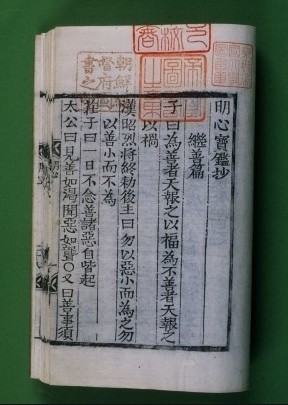 明心寶鑑抄
繼善篇
子曰為善者天報之以福為不善者天報之
以禍
漢昭烈將終勅後主曰勿以惡小而為之勿
以善小而不為
莊子曰一日不念善諸惡自皆起
太公曰見善如渴聞惡如聾○又曰善事須
朝鮮
督府
書之